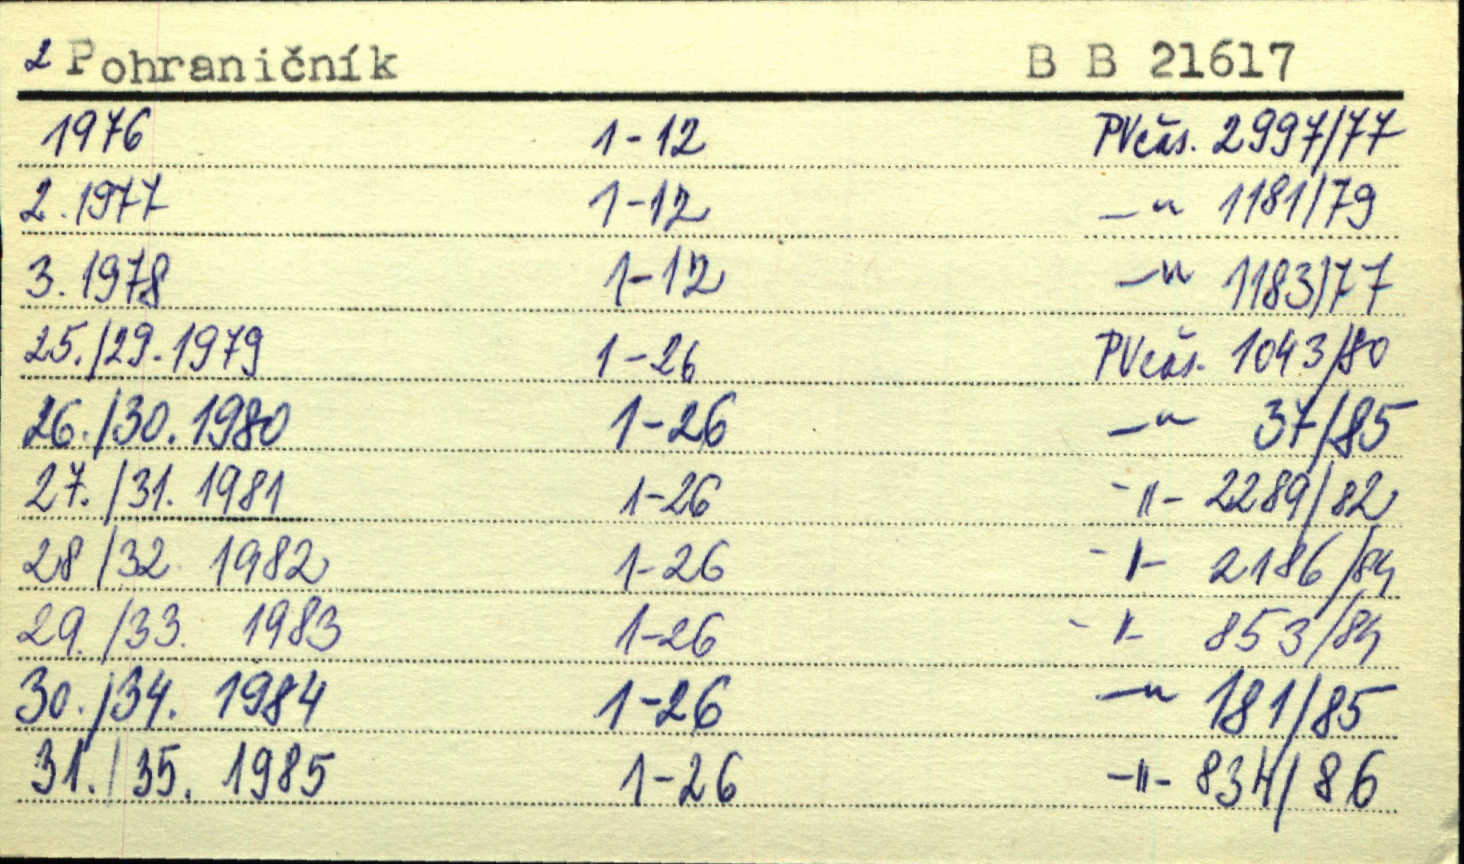 2 Pohraničník B B 21617
1976 1-12 PVčas. 2997/77
2. 1977 1-12 —"— 1181/79
3. 1978 1-12 —"— 1183/77
25./29. 1979 1-26 PVčas. 1043/80
26./30. 1980 1-26 —"— 37/85
27./31. 1981 1-26 -"- 2289/82
28/32. 1982 1-26 -"- 2186/84
29./33. 1983 1-26 -"- 853/84
30./34. 1984 1-26 —"— 181/85
31./35. 1985 1-26 -"- 834/86